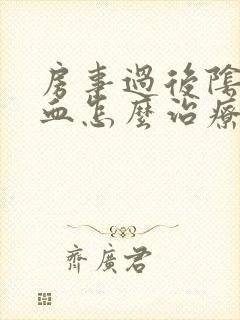 房事過後陰
血怎麼治療
齊廣君